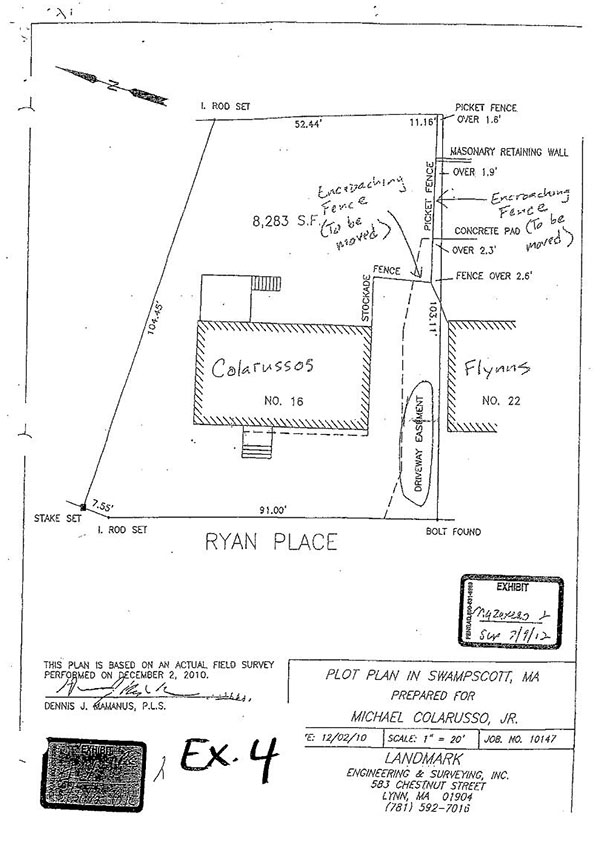 N
I. ROD SET
52.44'
11.16'
PICKET FENCE
OVER 1.6'
MASONARY RETAINING WALL
OVER 1.9'
PICKET FENCE
Encroaching
Fence
(To be
moved)
8,283 S.F.
Encroaching
Fence
(To be
moved)
CONCRETE PAD
OVER 2.3'
FENCE OVER 2.6'
STOCKADE
FENCE
103.11'
104.45'
Colarussos
NO. 16
Flynns
NO. 22
DRIVEWAY EASEMENT
7.55'
STAKE SET
I. ROD SET
91.00'
BOLT FOUND
RYAN PLACE
EXHIBIT
7/9/12
THIS PLAN IS BASED ON AN ACTUAL FIELD SURVEY
PERFORMED ON DECEMBER 2, 2010.
DENNIS J. MAMANUS, P.L.S.
EXHIBIT
Ex. 4
PLOT PLAN IN SWAMPSCOTT, MA
PREPARED FOR
MICHAEL COLARUSSO, JR.
TE: 12/02/10
SCALE: 1" = 20'
JOB. NO. 10147
LANDMARK
ENGINEERING & SURVEYING, INC.
583 CHESTNUT STREET
LYNN, MA 01904
(781) 592-7016